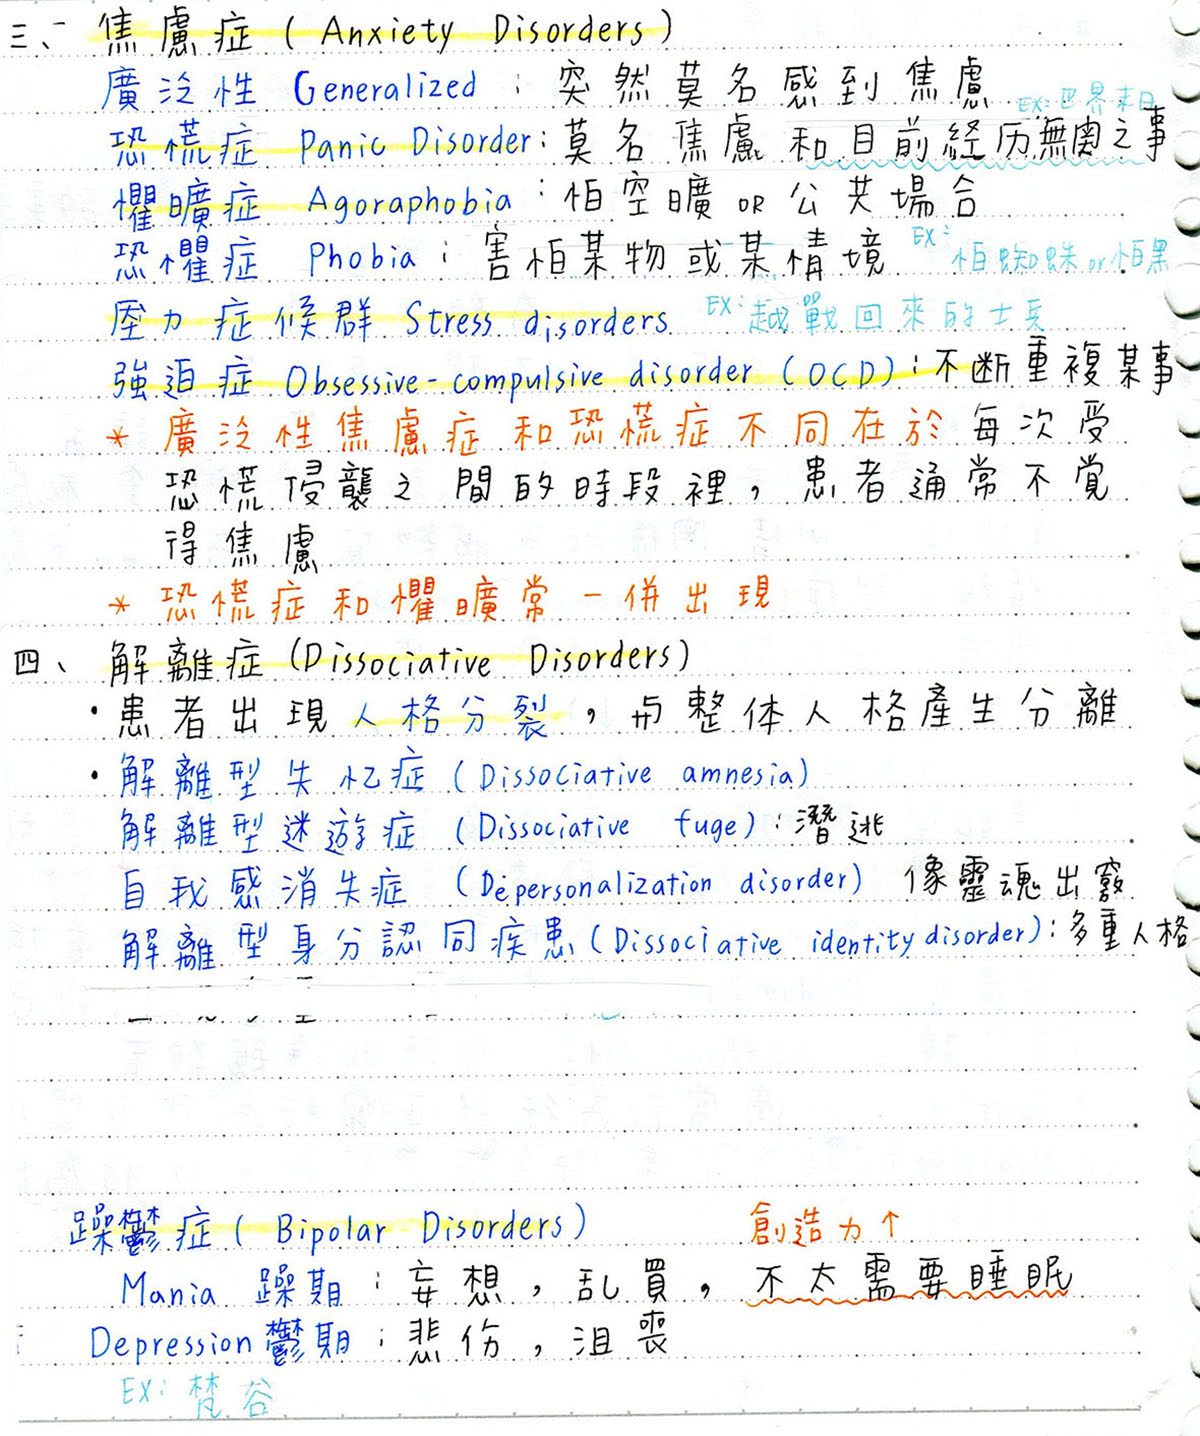 三、焦慮症 (Anxiety Disorders)
廣泛性 Generalized：突然莫名感到焦慮
EX：世界末日
恐慌症 Panic Disorder：莫名焦慮 和目前経历無関之事
懼曠症 Agoraphobia：怕空曠 OR 公共場合
恐懼症 Phobia：害怕某物或某情境 EX：怕蜘蛛 or 怕黑
壓力症候群 Stress disorders EX：越戰回來的士兵
強迫症 Obsessive-compulsive disorder (OCD)：不断重複某事
* 廣泛性焦慮症和恐慌症不同在於每次受
恐慌侵襲之間的時段裡，患者通常不覚
得焦慮
* 恐慌症和懼曠常一併出現
四、解離症 (Dissociative Disorders)
・患者出現人格分裂，与整体人格產生分離
・解離型失忆症 (Dissociative amnesia)
解離型迷遊症 (Dissociative fuge)：潛逃
自我感消失症 (Depersonalization disorder) 像靈魂出竅
解離型身分認同疾患 (Dissociative identity disorder)：多重人格
躁鬱症 (Bipolar Disorders) 創造力↑
Mania 躁期：妄想，乱買，不太需要睡眠
Depression 鬱期：悲伤，沮喪
EX：梵谷